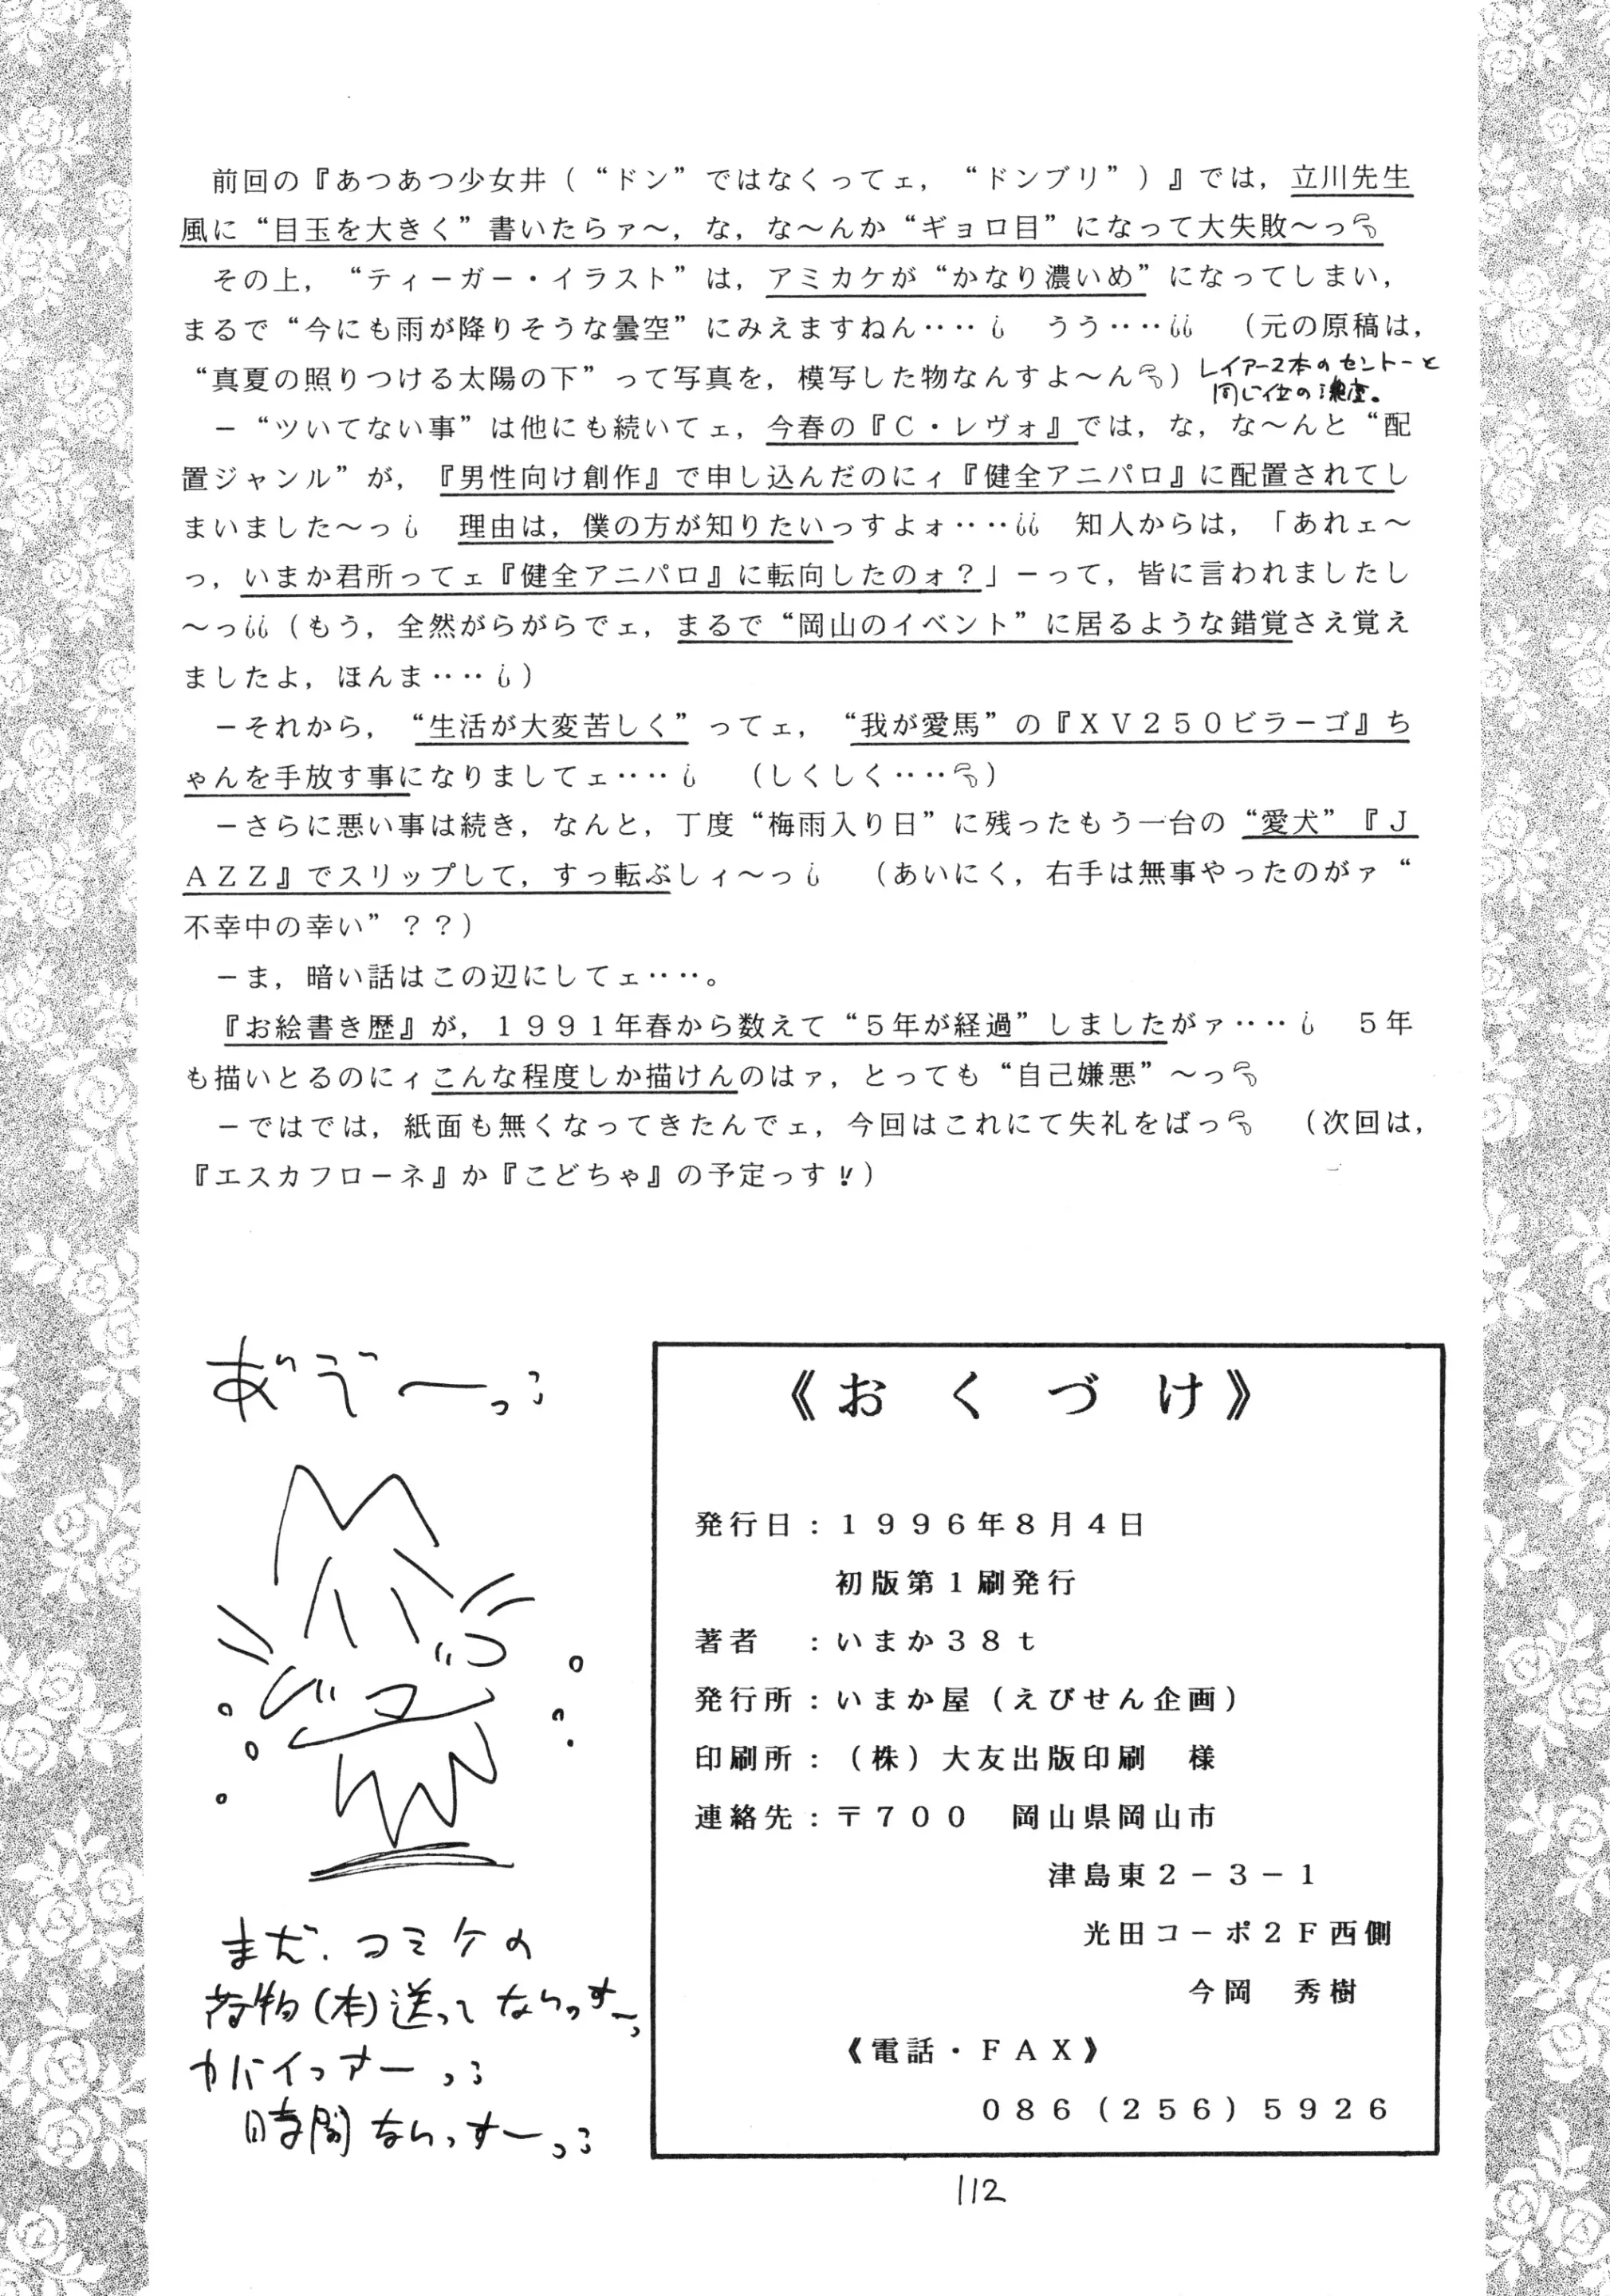 前回の『あつあつ少女丼（“ドン”ではなくってェ，“ドンブリ”）』では，立川先生
風に“目玉を大きく”書いたらァ～，な，な～んか“ギョロ目”になって大失敗～っ
その上，“ティーガー・イラスト”は，アミカケが“かなり濃いめ”になってしまい，
まるで“今にも雨が降りそうな曇空”にみえますねん‥‥　うう‥‥　（元の原稿は，
“真夏の照りつける太陽の下”って写真を，模写した物なんすよ～ん）
レイアース本のセントーと
同じ位の濃度。
－“ツいてない事”は他にも続いてェ，今春の『Ｃ・レヴォ』では，な，な～んと“配
置ジャンル”が，『男性向け創作』で申し込んだのにィ『健全アニパロ』に配置されてし
まいました～っ　理由は，僕の方が知りたいっすよォ‥‥　知人からは，「あれェ～
っ，いまか君所ってェ『健全アニパロ』に転向したのォ？」－って，皆に言われましたし
～っ（もう，全然がらがらでェ，まるで“岡山のイベント”に居るような錯覚さえ覚え
ましたよ，ほんま‥‥）
－それから，“生活が大変苦しく”ってェ，“我が愛馬”の『ＸＶ２５０ビラーゴ』ち
ゃんを手放す事になりましてェ‥‥　（しくしく‥‥）
－さらに悪い事は続き，なんと，丁度“梅雨入り日”に残ったもう一台の“愛犬”『Ｊ
ＡＺＺ』でスリップして，すっ転ぶしィ～っ　（あいにく，右手は無事やったのがァ“
不幸中の幸い”？？）
－ま，暗い話はこの辺にしてェ‥‥。
『お絵書き歴』が，１９９１年春から数えて“５年が経過”しましたがァ‥‥　５年
も描いとるのにィこんな程度しか描けんのはァ，とっても“自己嫌悪”～っ
－ではでは，紙面も無くなってきたんでェ，今回はこれにて失礼をばっ　（次回は，
『エスカフローネ』か『こどちゃ』の予定っす!!）
《おくづけ》
発行日：１９９６年８月４日
初版第１刷発行
著者　：いまか３８ｔ
発行所：いまか屋（えびせん企画）
印刷所：（株）大友出版印刷　様
連絡先：〒７００　岡山県岡山市
津島東２－３－１
光田コーポ２Ｆ西側
今岡　秀樹
《電話・ＦＡＸ》
０８６（２５６）５９２６
まだ、コミケの
荷物(本)送ってないっすーっ
ヤバイっすーっ
時間ないっすーっ
112